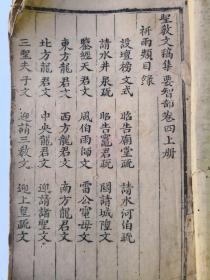 聖教文稿集要智部卷四上册
祈雨類目錄
設壇榜文式 昭告廟堂疏 請水河伯疏
請水井泉疏 昭告竈君疏 關請城隍文
鑒經天君文 風伯雨師文 雷公電母文
東方龍君文 西方龍君文 南方龍君文
北方龍君文 中央龍君文 迎請諸聖文
三聖夫子文 迎請三教文 迎上皇疏文